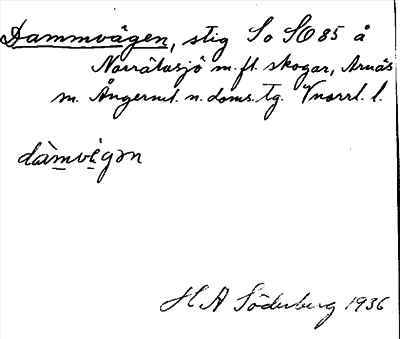 Dammvägen, stig So SO 85 å
Norrätasjö m. fl. skogar, Arnäs
sn. Ångerml. n. doms. tg. Vnorrl. l.
dàmvęgən
H A Söderberg 1936